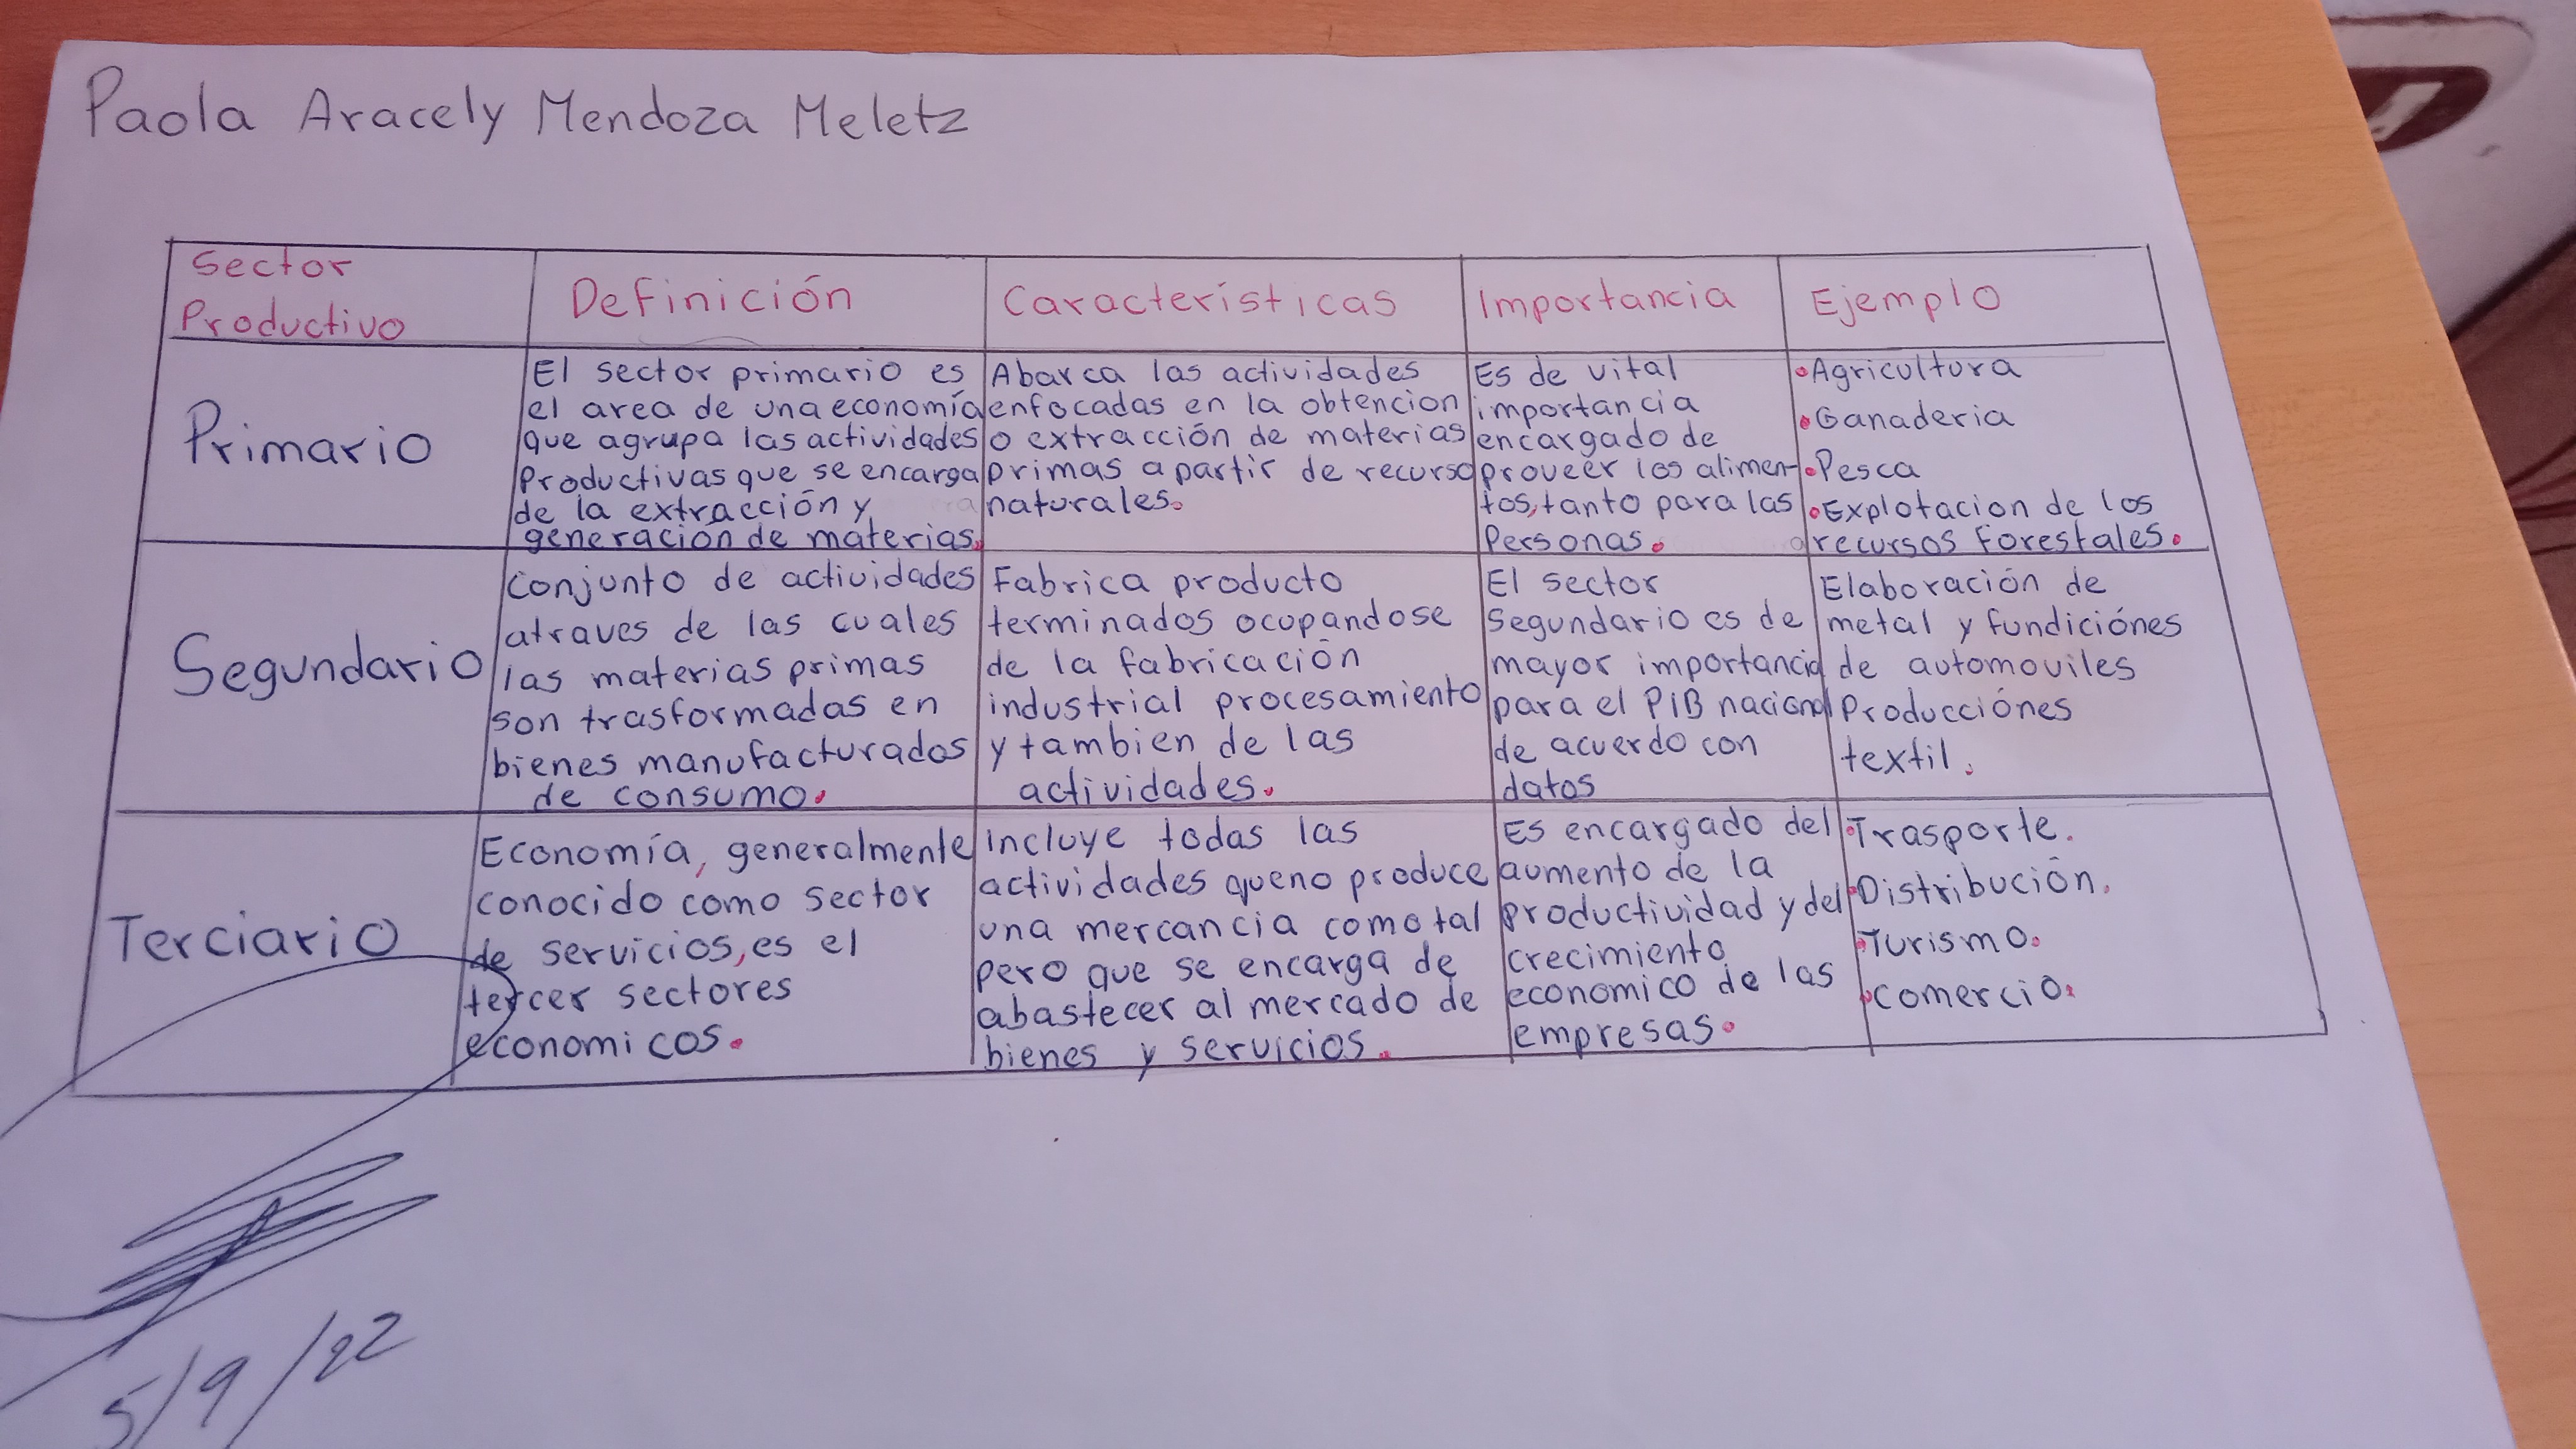 Paola Aracely Mendoza Meletz
Sector
Productivo
Definición
Características
Importancia
Ejemplo
Primario
El sector primario es
el area de una economía
que agrupa las actividades
Productivas que se encarga
de la extracción y
generación de materias.
Abarca las actividades
enfocadas en la obtencion
o extracción de materias
primas apartir de recurso
naturales.
Es de vital
importancia
encargado de
proveer los alimen-
tos, tanto para las
Personas.
•Agricultura
•Ganaderia
•Pesca
•Explotacion de los
recursos Forestales.
Segundario
Conjunto de actividades
atraves de las cuales
las materias primas
son trasformadas en
bienes manufacturados
de consumo.
Fabrica producto
terminados ocupandose
de la fabricación
industrial procesamiento
y tambien de las
actividades.
El sector
Segundario es de
mayor importancia
para el PIB nacional
de acuerdo con
datos
Elaboración de
metal y fundiciónes
de automoviles
Producciónes
textil.
Terciario
Economía, generalmente
conocido como sector
de servicios, es el
tercer sectores
economicos.
Incluye todas las
actividades queno produce
una mercancia como tal
pero que se encarga de
abastecer al mercado de
bienes y servicios.
Es encargado del
aumento de la
productividad y del
crecimiento
economico de las
empresas.
•Trasporte.
•Distribución.
•Turismo.
•comercio.
5/9/22